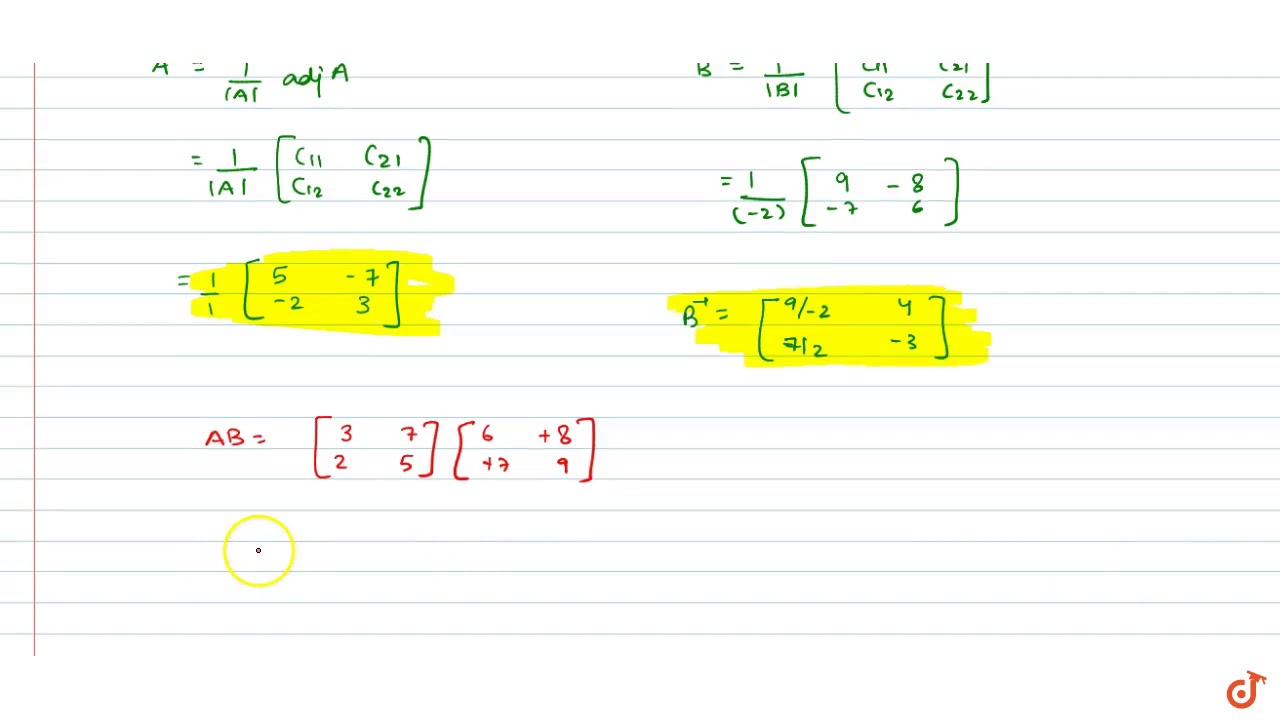 A = 1/|A| adj A
= 1/|A| [C11 C21
C12 C22]
= 1/1 [5 -7
-2 3]
B = 1/|B| [C11 C21
C12 C22]
= 1/(-2) [9 -8
-7 6]
B⁻¹ = [9/-2 4
7/2 -3]
AB = [3 7 [6 +8
2 5] +7 9]